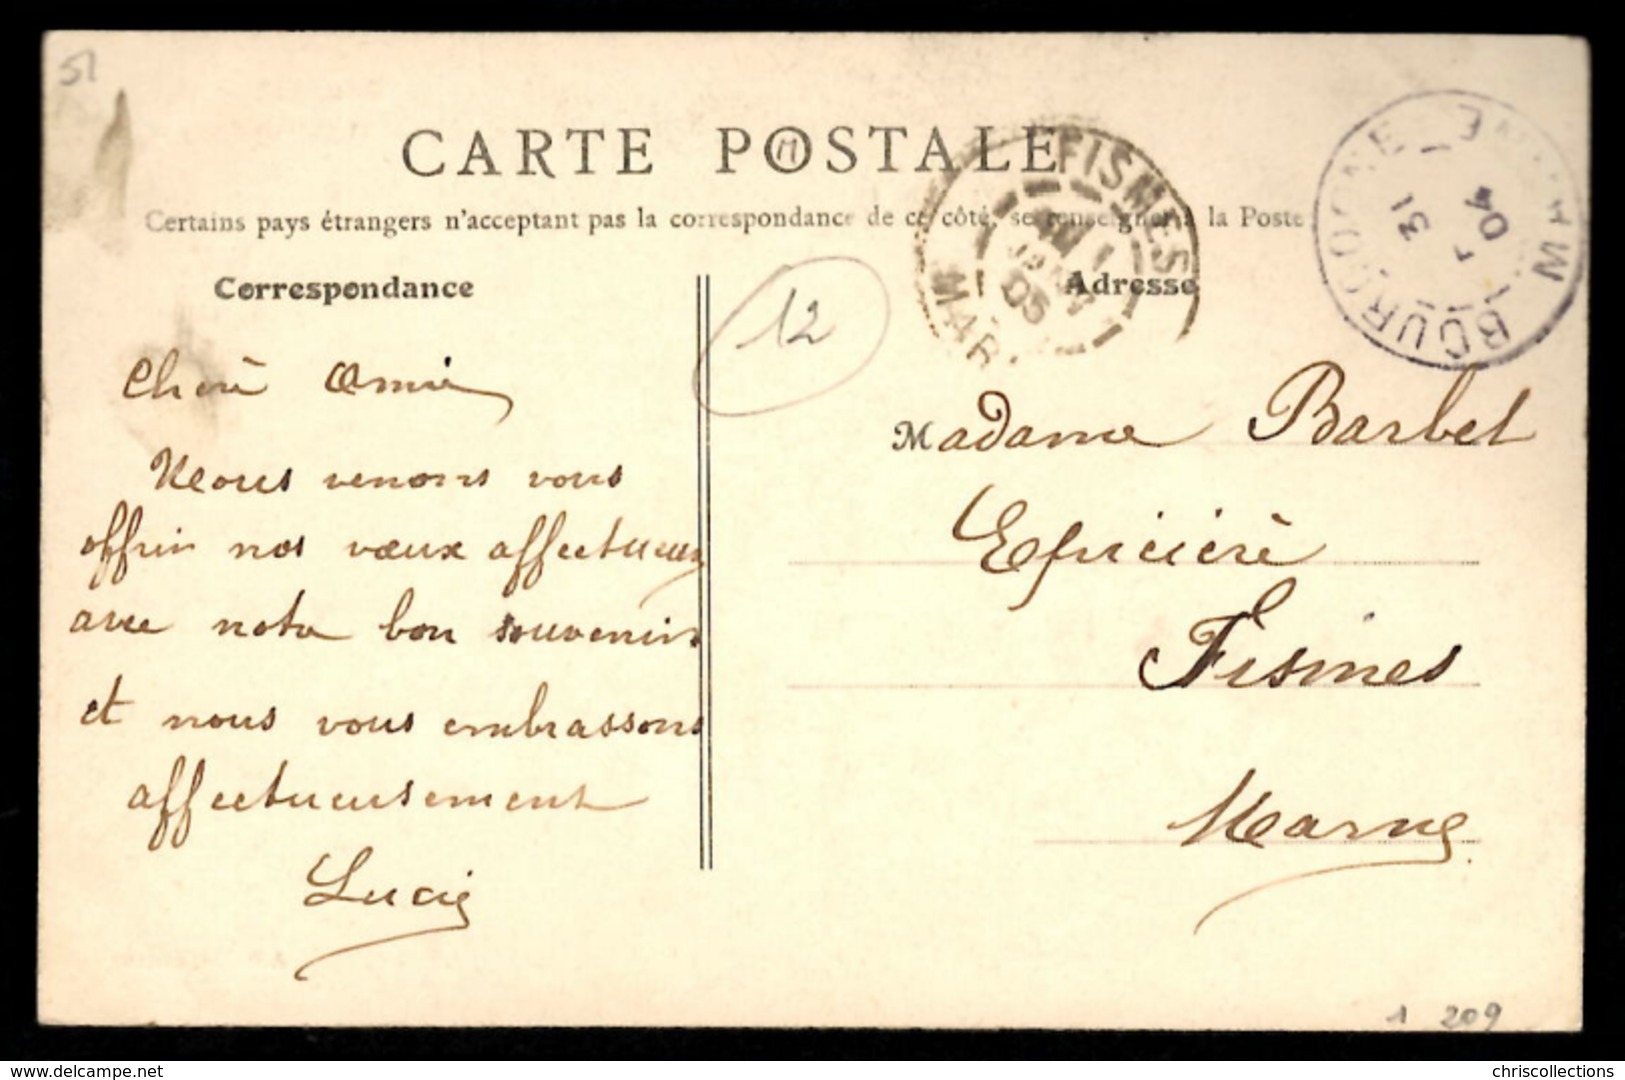 51
CARTE POSTALE
Certains pays étrangers n'acceptant pas la correspondance de ce côté, se renseigner à la Poste
Correspondance
Adresse
12
FISMES
MAR
1
JANV
05
BOURGOGNE
MARNE
31
04
Cherè Amie
Nous venons vous
offrir nos vœux affectueux
avec notre bon souvenir
et nous vous embrassons
affectueusement
Lucie
Madame Barbet
Epicièrè
Fismes
Marne
1 209
delcampe.net
chriscollections